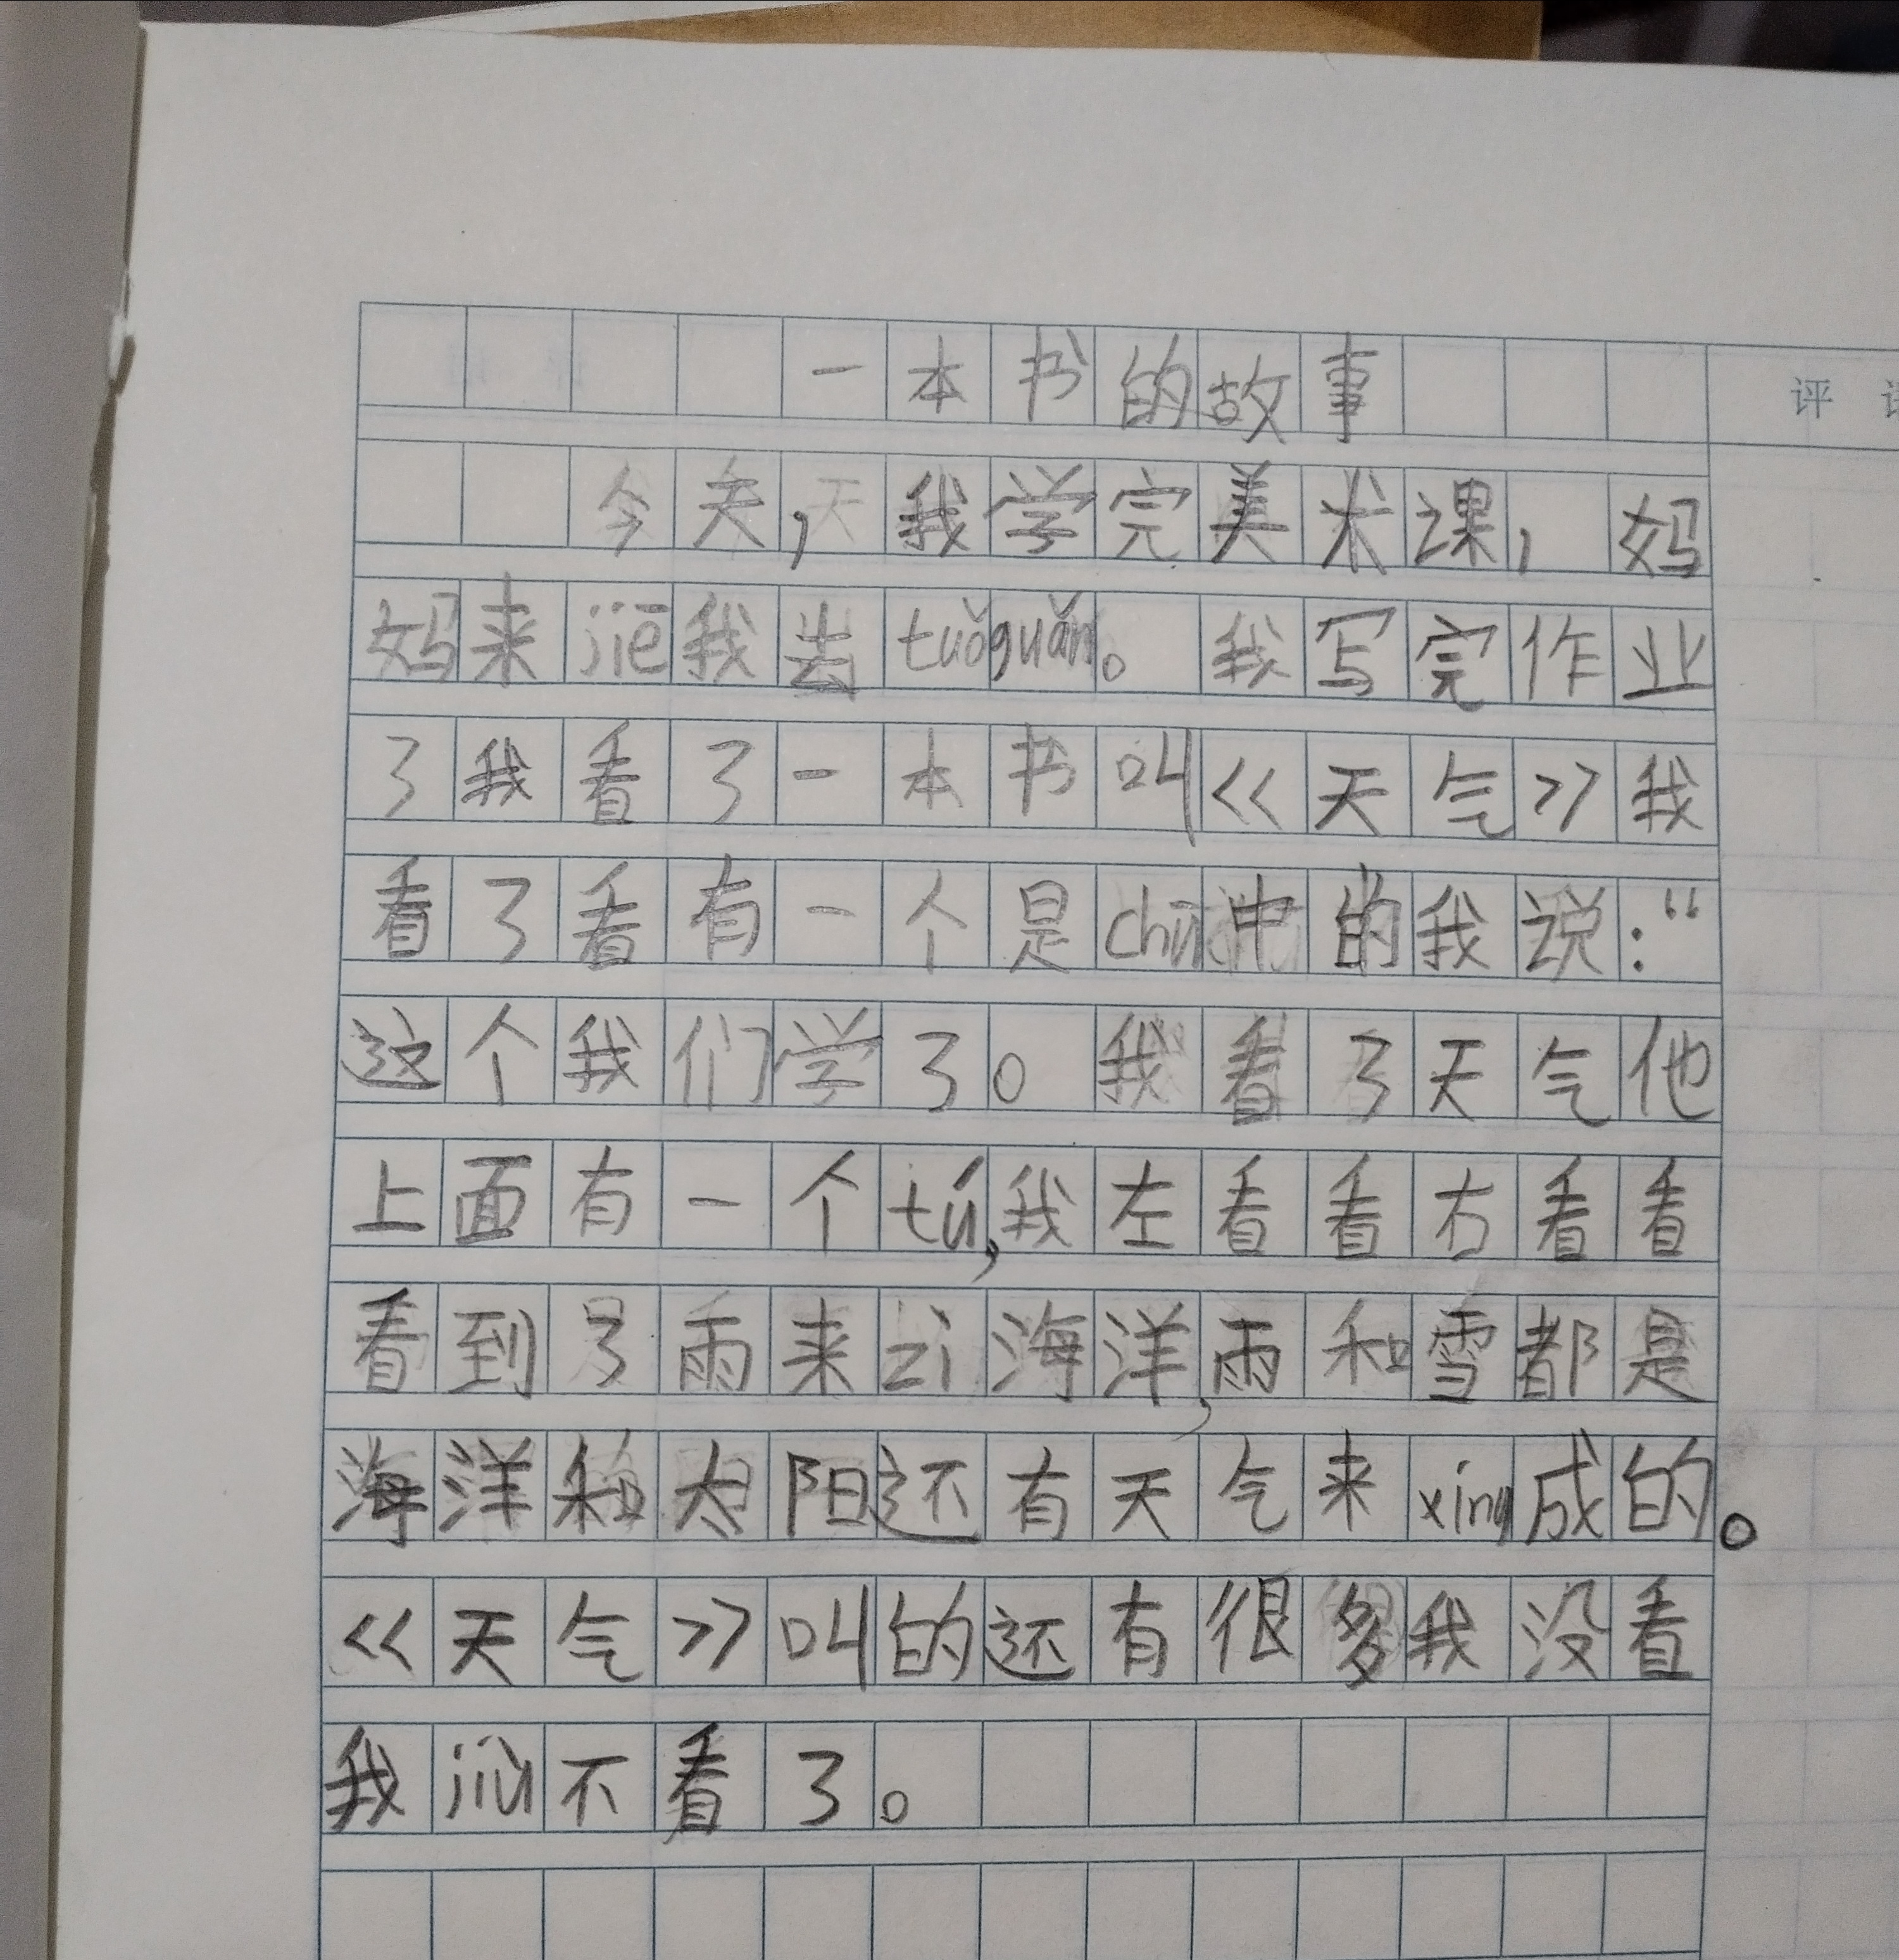 一本书的故事
评
今天，我学完美术课，妈
妈来jiē我去tuǒguǎn。我写完作业
了我看了一本书叫《天气》我
看了看有一个是中的我说：“
这个我们学了。我看了天气他
上面有一个tú，我左看看右看看
看到了雨来zì海洋，雨和雪都是
海洋和太阳还有天气来xíng成的。
《天气》叫的还有很多我没看
我jiù不看了。